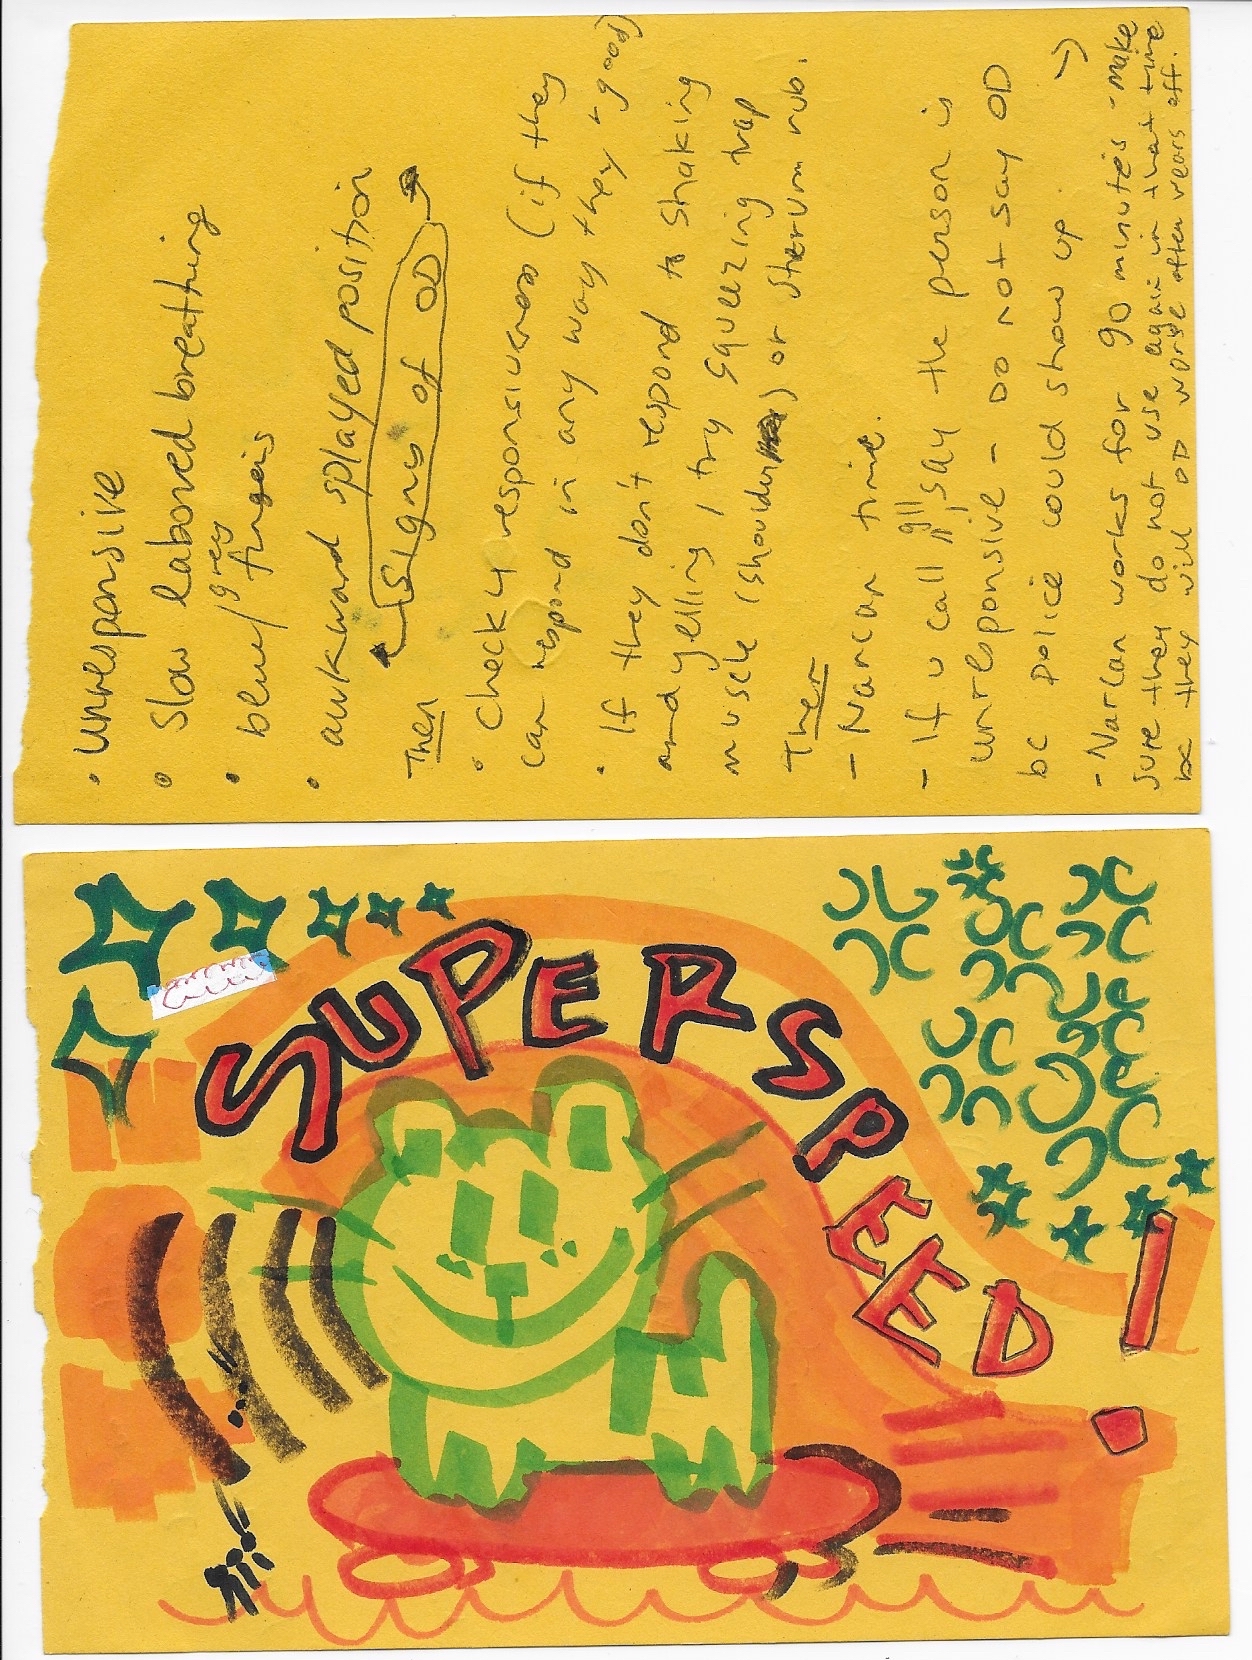 • unresponsive
• Slow labored breathing
• blue/grey
fingers
• awkward splayed position
Signs of OD
Then
• Check 4 responsiveness (if they
can respond in any way they r good)
• If they don't respond to shaking
and yelling / try squeezing trap
muscle (shoulder) or sternum rub.
Then
- Narcan time.
- If u call 911 say the person is
unresponsive - Do not say OD
bc police could show up. →
- Narcan works for 90 minutes - make
sure they do not use again in that time
bc they will OD worse after wears off.
SUPER SPEED!